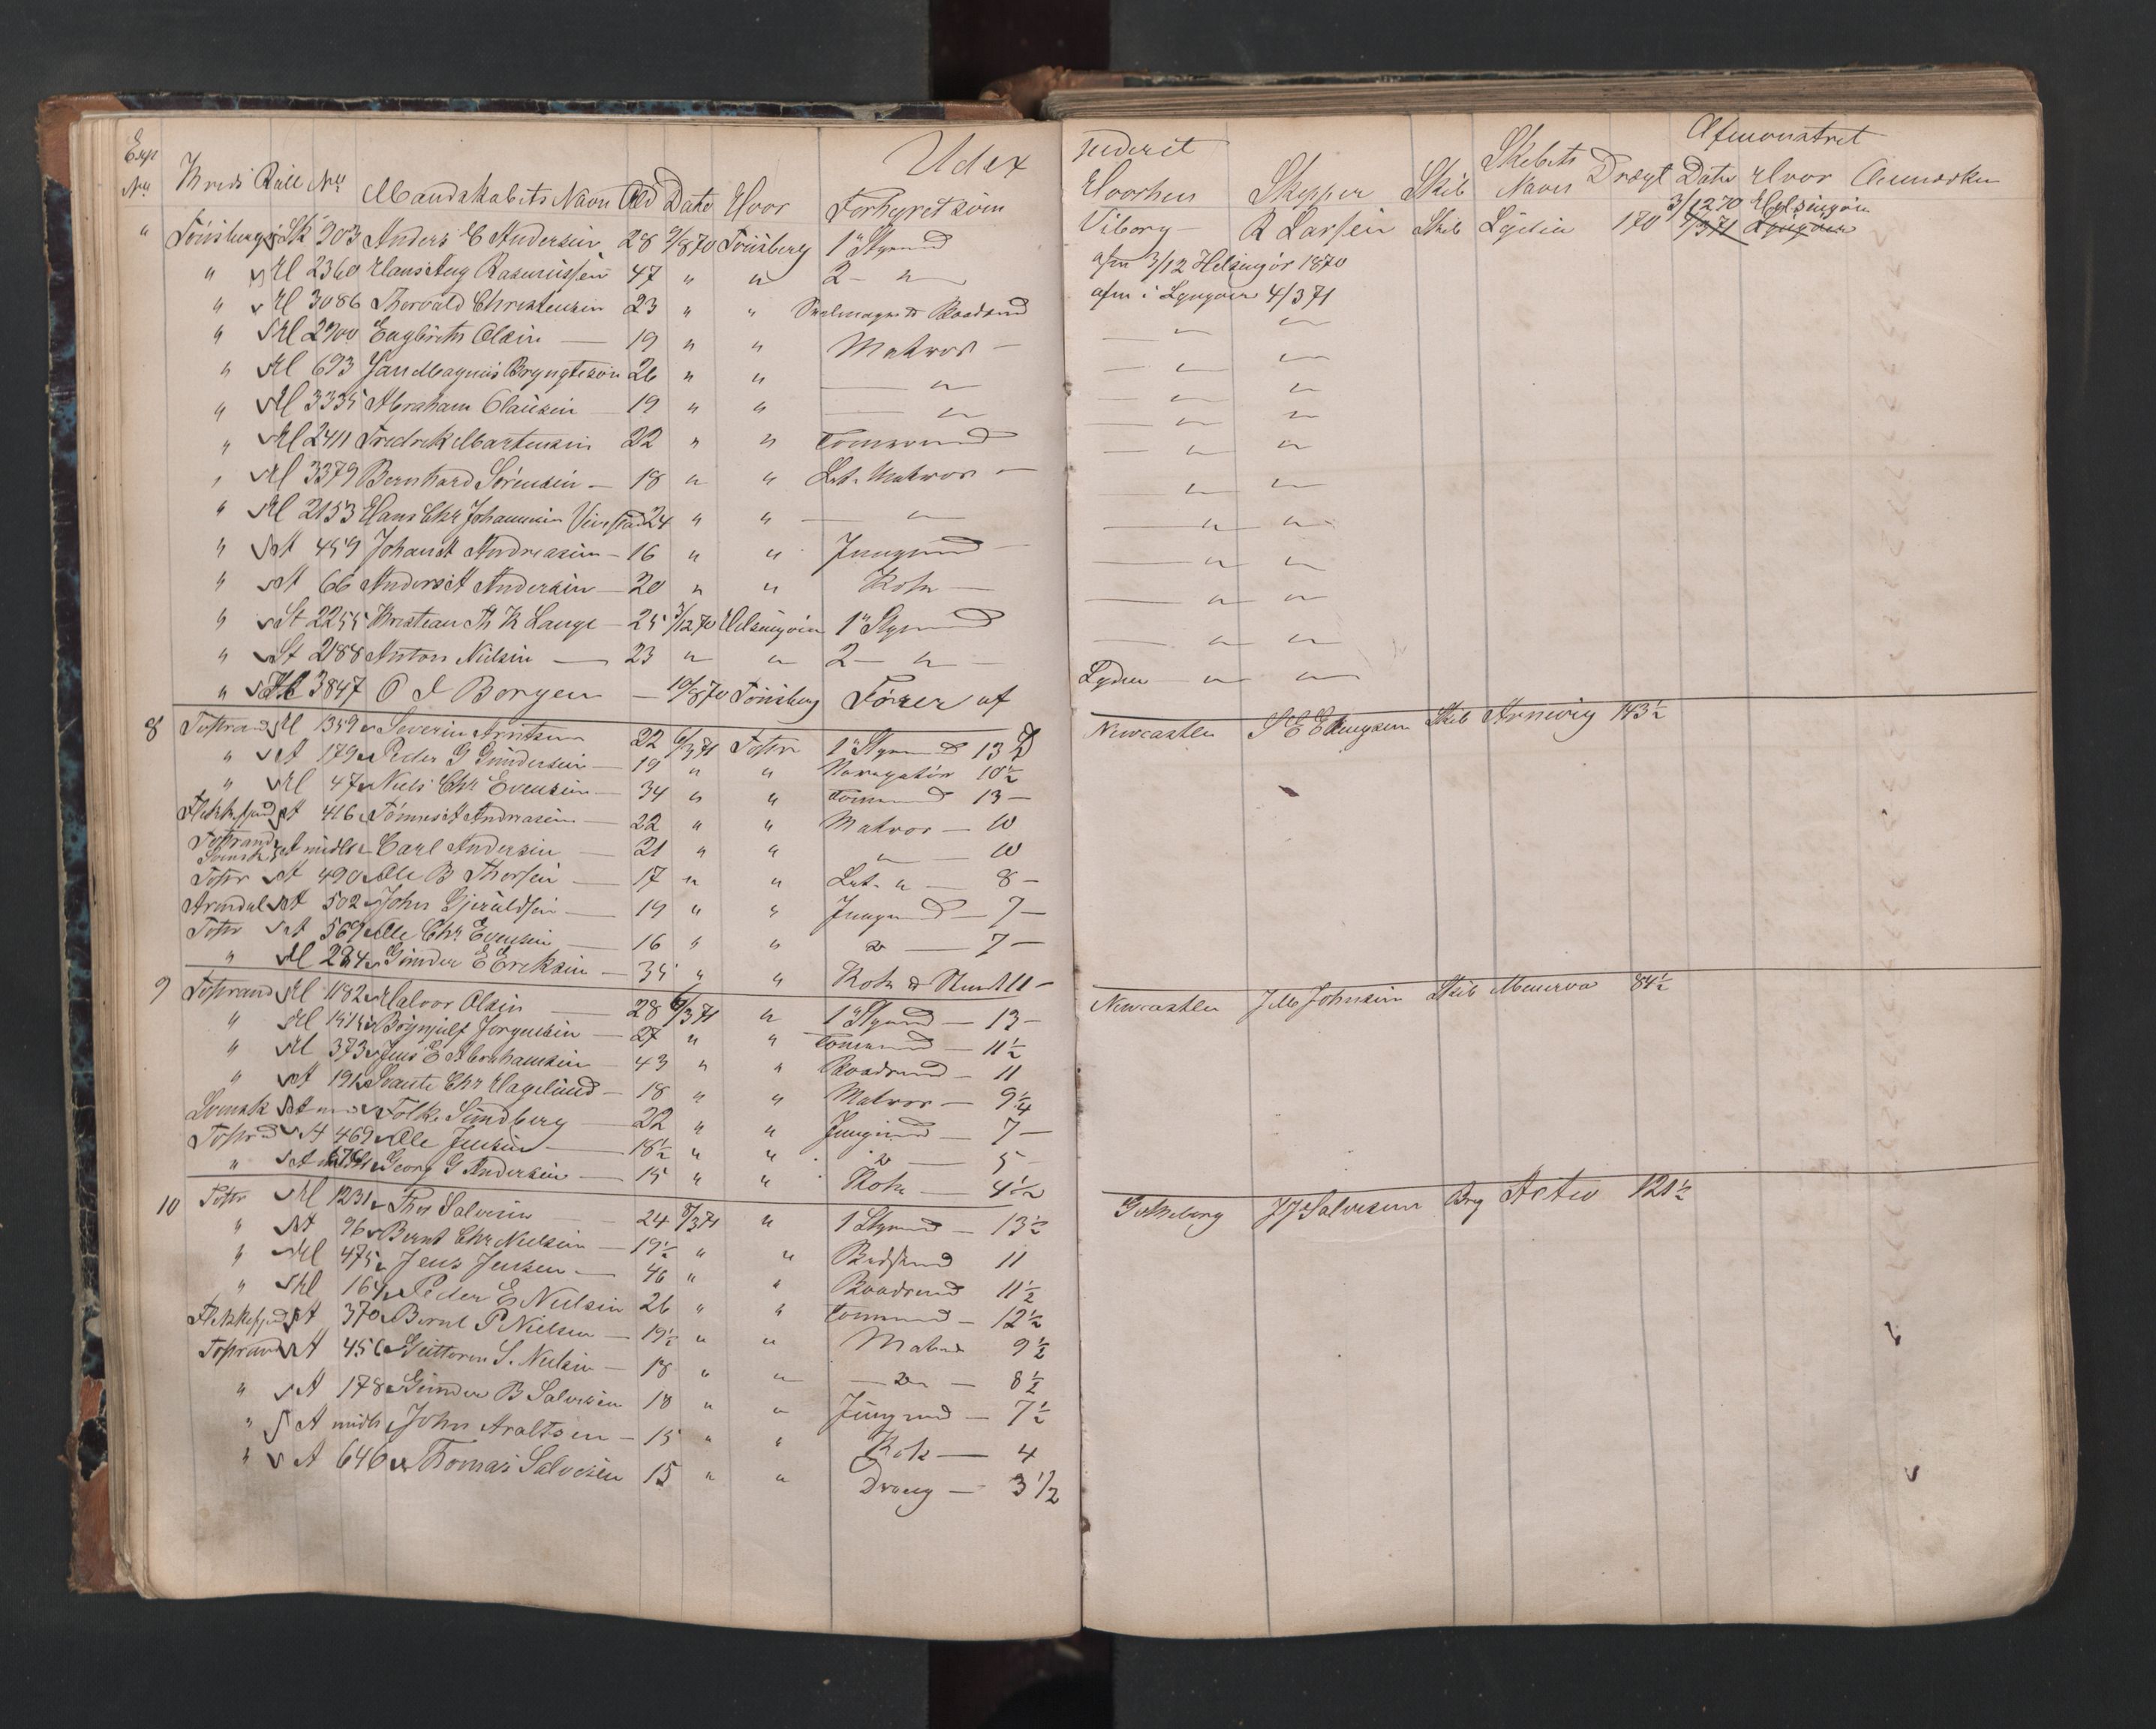 Udex
Exp No Kreds Rull No Mandskabets Navn Ald Dato Hvor Forhyret som
" Tönsberg St 903 Anders E Andersen 28 9/8 70 Tönsberg 1ste Styrmd
" Hl 2360 Hans Aug Rasmussen 47 " " 2 — "
" Hl 3086 Thorvald Christensen 23 " " Seilmager & Baadsmd
" Hl 2900 Engbreth Olsen — 19 " " Matros —
" Hl 693 Jan Magnus Bryngteson 26 " " — "
" Hl 3335 Abraham Clausen — 19 " " — "
" Hl 2411 Fredrik Martensen 22 " " Tommermd
" Hl 3379 Bernhard Sörensen — 18 " " Let. Matros —
" Hl 2153 Hans Chr Johannsen 24 " " — "
" A 459 Johan A Andreasen — 16 " " Jungmd —
" A 66 Anders A Andersen — 20 " " Kok —
" St 2255 Kristean Th K Lange — 25 3/12 70 Helsingöer 1ste Styrmd
" St 2188 Anton Nielsen — 23 " " 2 — " —
" 3847 O A Borgen — 10/8 70 Tönsberg Förer af
8 Tostrand Hl 1359 Severin Arntsen 22 6/3 71 Tostr 1ste Styrmd 13
" A 179 Peder G Gundersen — 19 " " Navigatör 10½
" Hl 47 Niels Chr Evensen — 34 " " Tommermd 13 —
Flekkefjord A 416 Tönnes A Andreasen — 22 " " Matros — 10
Tostrand Svensk A midls Carl Andersen — 21 " " " — 10
Tostr A 490 Ole B Thorsen — 17 " " Let. " — 8 —
Arendal A 502 John Gjeruldsen — 19 " " Jungmd — 7 —
Tostr A 569 Ole Chr Evensen — 16 " " " — 7 —
" Hl 284 Gunder E Ereksen — 35 " " Kok & Stuert 11 —
9 Tostrand Hl 1182 Halvor Olsen — 28 6/3 71 " 1ste Styrmd — 13 —
" Hl Börgnjulf Jörgensen — 27 " " Tommermd — 11½
" Hl 373 Jens E Abrahamsen — 43 " " Baadsmd — 11
" A 191 Svante Chr Hagelund — 18 " " Matros — 9¼
Svensk A Folke Sundberg — 22 " " Jungmd — 7 —
Tostrd A 469 Ole Jensen — 18½ " " " — 5
" A Georg G Andersen — 15 " " Kok — 4½
10 Tostr Hl 1231 Thos Salvesen — 24 8/3 71 " 1 Styrmd — 13½
" A 96 Bernt Chr Nielsen — 19½ " " Bestmd 11
" Hl 475 Jens Jensen — 46 " " Baadsmd 11½
" Hl 164 Peder E Nielsen 26 " " Tommermd — 12½
Flekkefjord A 370 Bernt P Nielsen — 19½ " " Matros 9½
Tostrand A 456 Guttorm S. Nielsen — 18 " " — " — 8½
" A 178 Gunder B Salvesen 18 " " Jungmd — 7½
" A midls John Araltsen — 15 " " Kok — 4
" A 646 Thomas Salvesen 15 " " Dreng — 3 1/2
rederet
Skibets Afmönstret
Hvorhen Skipper Skib Navn Drægt Dato Hvor Anmærkn
3/12 70 Helsingöer
Viborg — R Larsen Skib Lydia 170 4/3 71 Lyngöer
afm 3/12 Helsingör 1870
afm i Lyngöer 4/3 71
— " "
— " "
— " "
— " "
— " "
— " "
— " "
— " "
— " "
— " "
Lydia — " "
Newcastle S E Ellingsen Skib Arnevig 143½
Newcastle J M Johnsen Skib Menerva 84½
Gotheborg J J Salvesen Brg Activ 121½